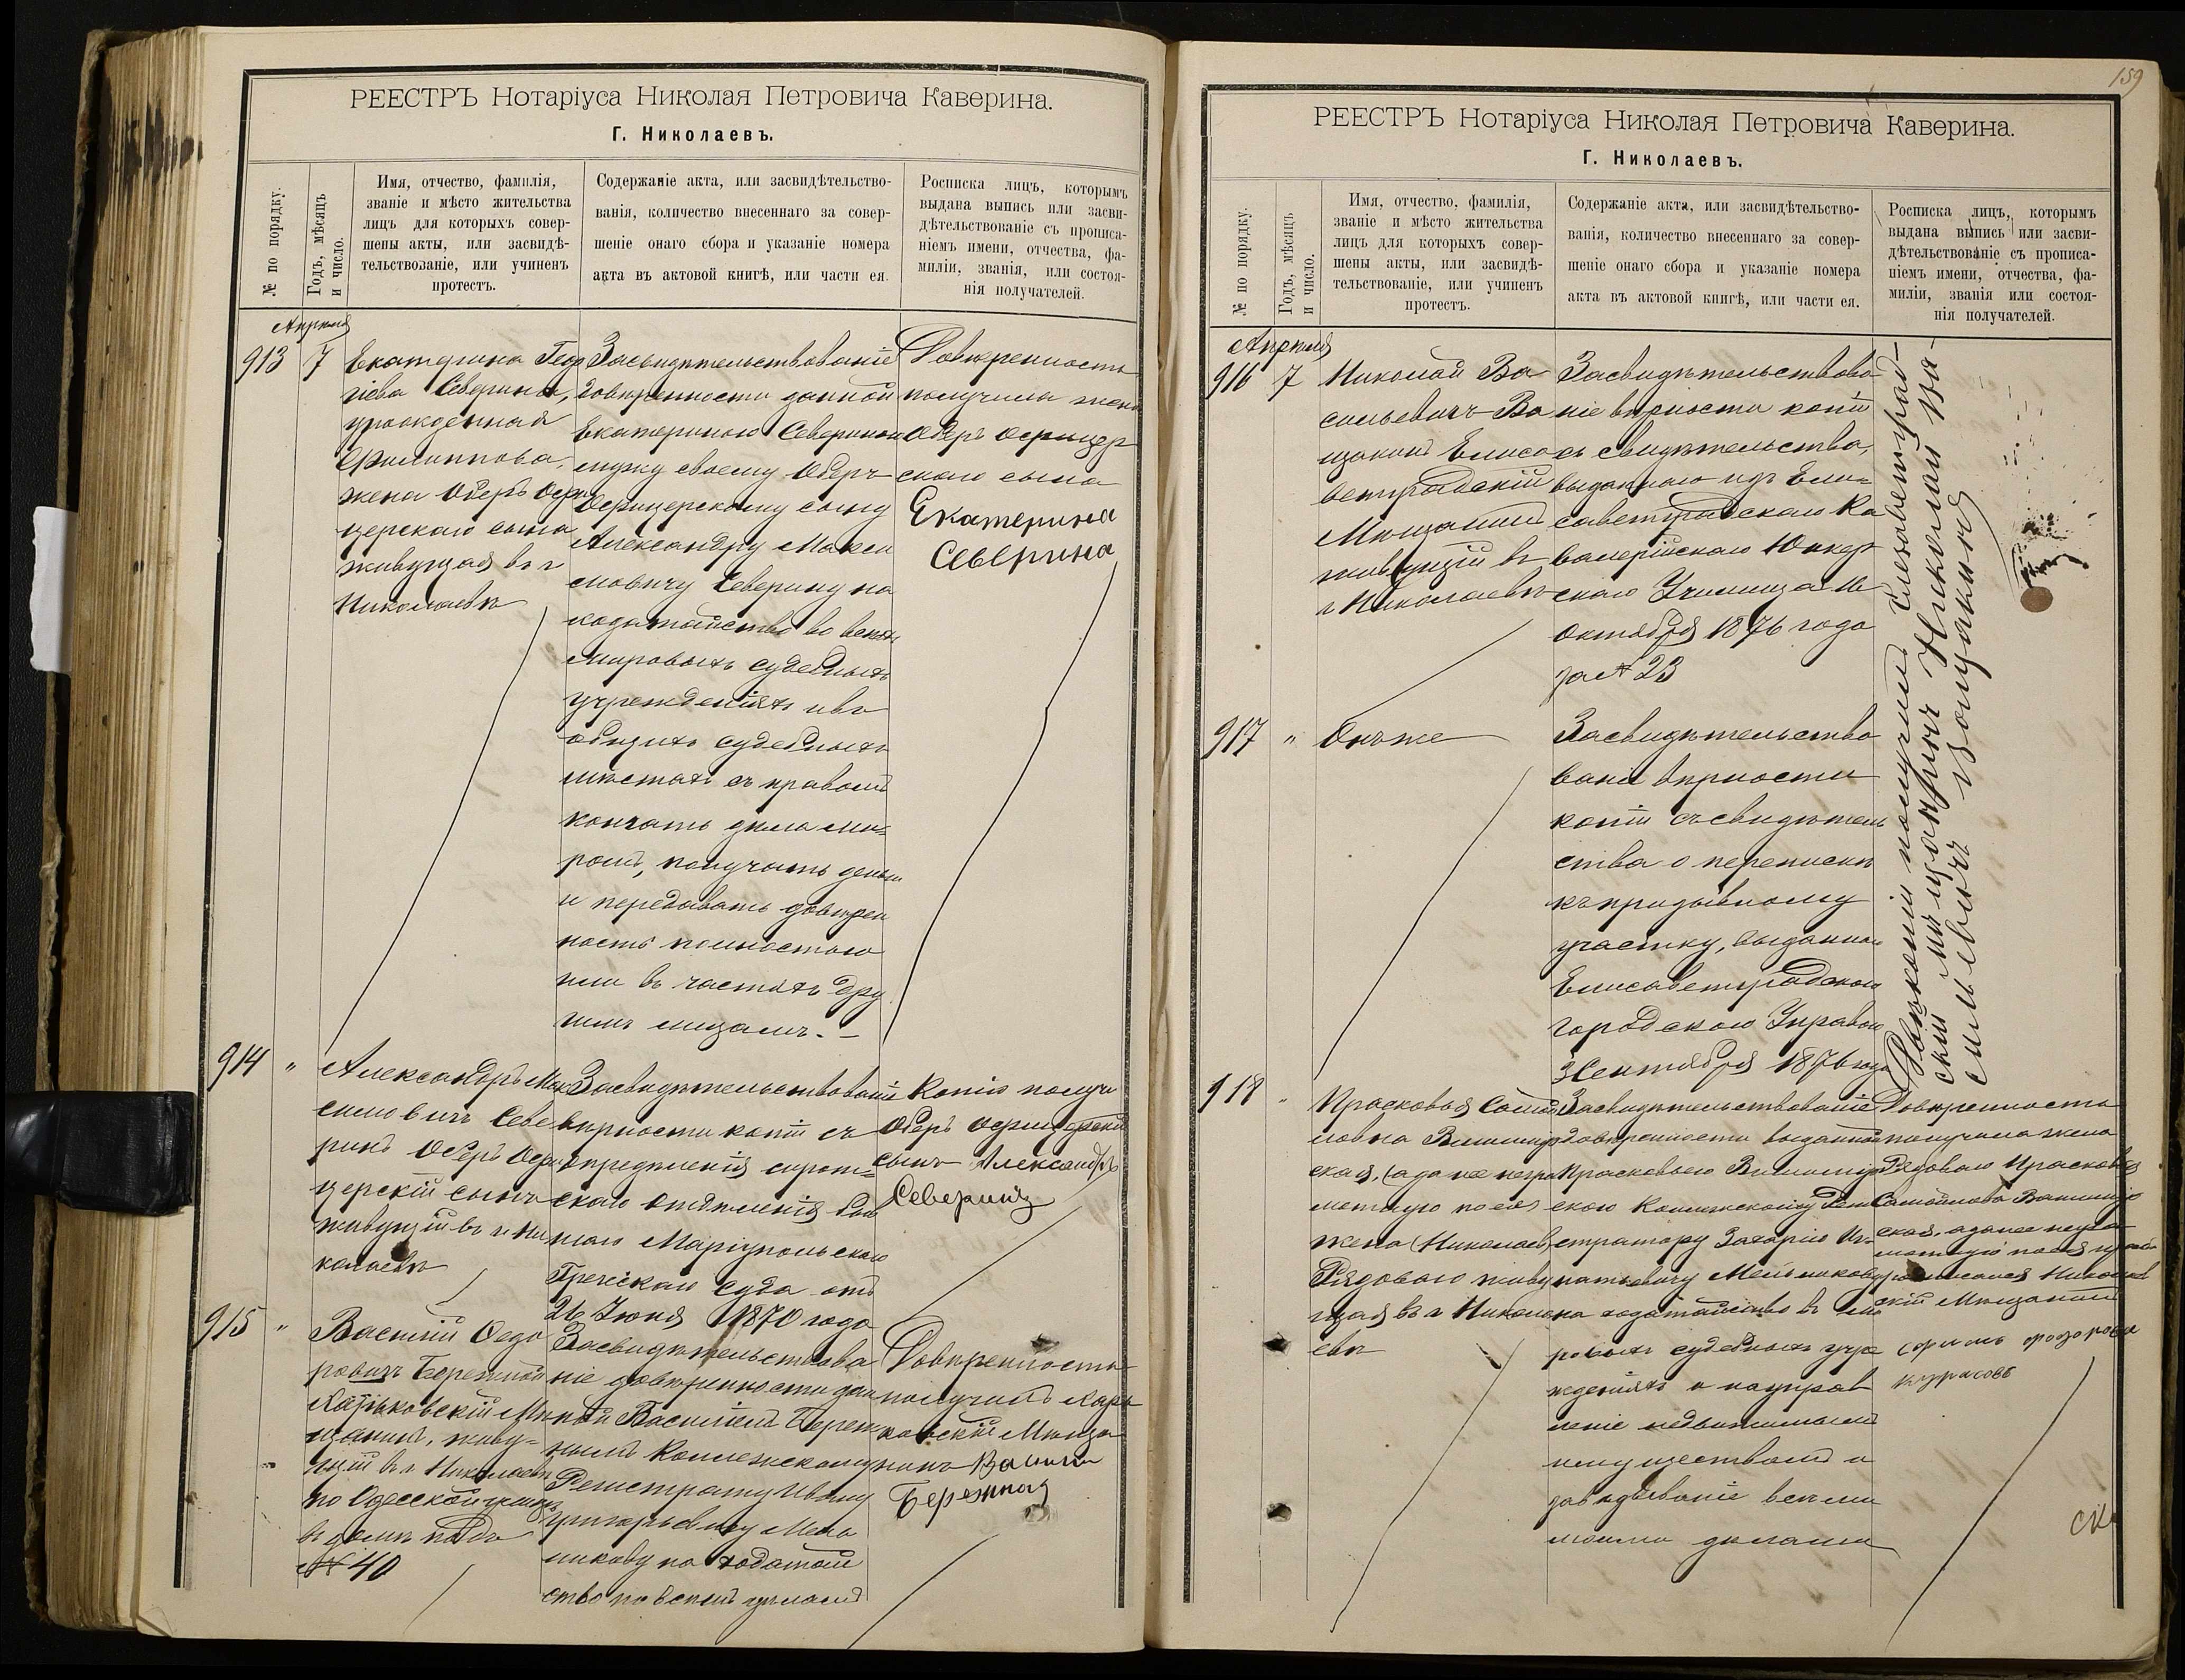 РЕЕСТРЪ Нотаріуса Николая Петровича Каверина.
Г. Николаевъ.
№ по порядку.
Годъ, мѣсяцъ
и число.
Имя, отчество, фамилія,
званіе и мѣсто жительства
лицъ для которыхъ совер-
шены акты, или засвидѣ-
тельствованіе, или учиненъ
протестъ.
Содержаніе акта, или засвидѣтельство-
ванія, количество внесеннаго за совер-
шеніе онаго сбора и указаніе номера
акта въ актовой книгѣ, или части ея.
Росписка лицъ, которымъ
выдана выпись или засви-
дѣтельствованіе съ прописа-
ніемъ имени, отчества, фа-
миліи, званія, или состоя-
нія получателей.
Апрѣля
913
7
Екатерина Геор
гіева Северина,
урожденная
Филиппова,
жена Оберъ Офи
церскаго сына
живущая въ г
Николаевѣ
Засвидѣтельствованіе
довѣренности данной
Екатериною Севериною
мужу своему Оберъ
Офицерскому сыну
Александру Макси
мовичу Северину на
ходатайство во всѣхъ
Мировыхъ судебныхъ
учрежденіяхъ и въ
общихъ судебныхъ
мѣстахъ съ правомъ
кончать дѣла ми-
ромъ, получать деньги
и передавать довѣрен
ность полностью
или въ частяхъ дру
гимъ лицамъ. -
Довѣренность
получила жена
Оберъ Офицер
скаго сына
Екатерина
Северина
914
"
Александръ Мак
симовичъ Севе
ринъ Оберъ Офи
церскій сынъ
живущій въ г Ни
колаевѣ
Засвидѣтельствованіе
вѣрности копіи съ
опредѣленія сирот-
скаго отдѣленія быв
шаго Маріупольскаго
Греческаго суда отъ
26 Іюня 1870 года
Копію получи
Оберъ Офицерскій
сынъ Александръ
Северинъ
915
"
Василій Ѳедо
ровичъ Бережной
Харьковскій Мѣ
щанинъ, живу-
щій въ г. Николаевѣ
по Одесской улицѣ
въ домѣ подъ
№ 40
Засвидѣтельствова
ніе довѣренности дан
ной Василіемъ Береж
нымъ Коллежскому
Регистратору Ивану
Григорьевичу Мель
никову на ходатай
ство по всѣмъ дѣламъ
Довѣренность
получилъ Харь
ковскій Мѣща
нинъ Васили
Бережной
159
РЕЕСТРЪ Нотаріуса Николая Петровича Каверина.
Г. Николаевъ.
№ по порядку.
Годъ, мѣсяцъ
и число.
Имя, отчество, фамилія,
званіе и мѣсто жительства
лицъ для которыхъ совер-
шены акты, или засвидѣ-
тельствованіе, или учиненъ
протестъ.
Содержаніе акта, или засвидѣтельство-
ванія, количество внесеннаго за совер-
шеніе онаго сбора и указаніе номера
акта въ актовой книгѣ, или части ея.
Росписка лицъ, которымъ
выдана выпись или засви-
дѣтельствованіе съ прописа-
ніемъ имени, отчества, фа-
миліи, званія или состоя-
нія получателей.
Апрѣля
916
7
Николай Ва
сильевичъ Во
щакинъ Елиса
ветградскій
Мѣщанинъ
живущій въ
г Николаевѣ
Засвидѣтельствова
ніе вѣрности копіи
съ свидѣтельства,
выданнаго изъ Ели-
саветградскаго Ка
валерійскаго Юнкер
скаго Училища 16
Октября 1876 года
за № 23
917
"
Онъ же
Засвидѣтельство
ваніе вѣрности
копіи съ свидѣтель
ства о перепискѣ
къ призывному
участку, выданнаго
Елисаветградскою
городскою Управою
3 Сентября 1876 года
копіи получилъ Елисаветград-
скій мѣщанинъ Николай Ва-
сильевичъ Вощакинъ
918
"
Прасковья Самой
ловна
ская, (а за нее негра
мотную по ея
жена (Николаев)
Рядоваго живу
щая въ г Никола
евѣ
Засвидѣтельствованіе
довѣренности выданной
Прасковьею
скою Коллежскому Реги
стратору Захарію Иг-
натьевичу Мельникову
на ходатайство въ Ми
ровыхъ судебныхъ учре
жденіяхъ и на управ
леніе недвижимымъ
имуществомъ и
завѣдываніе всѣми
моими дѣлами
Довѣренность
получила жена
Рядоваго Прасковья
Самойлова
ская, а за нее негра
мотную по ея прось
росписался Николаев
скій Мѣщанинъ
СК